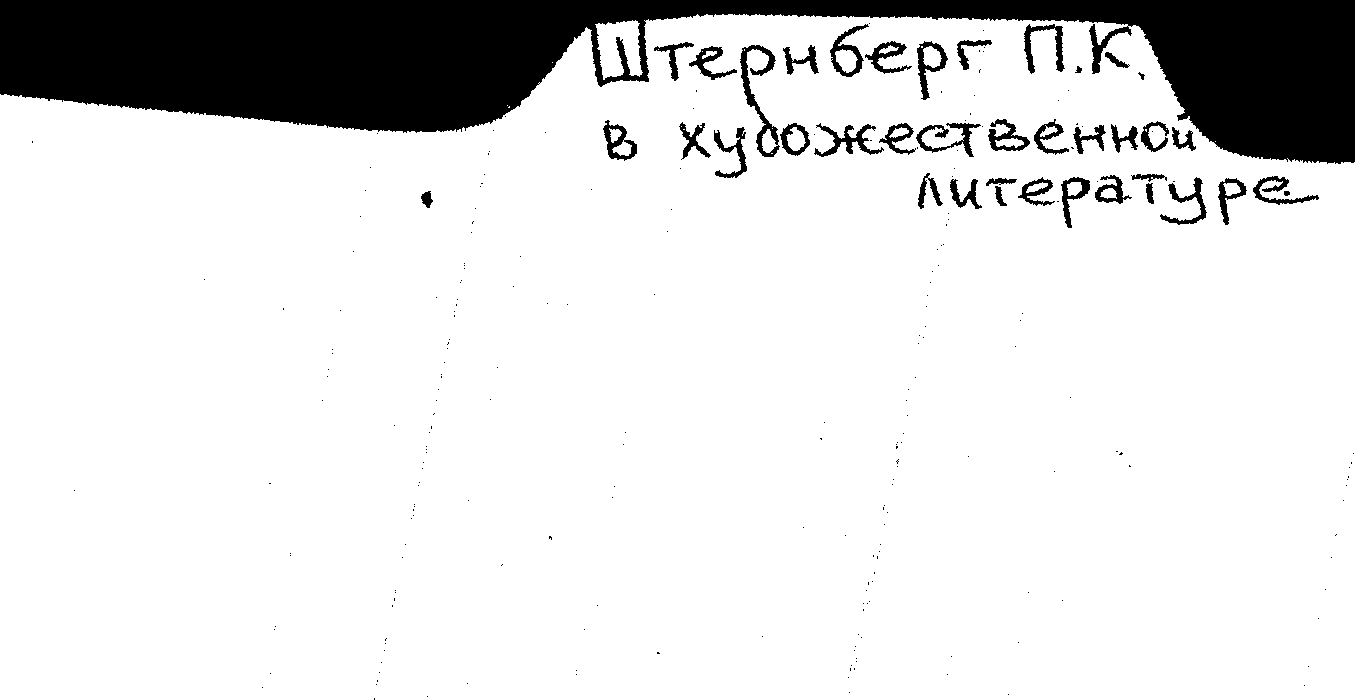 Штернберг П.К.
в художественной
литературе